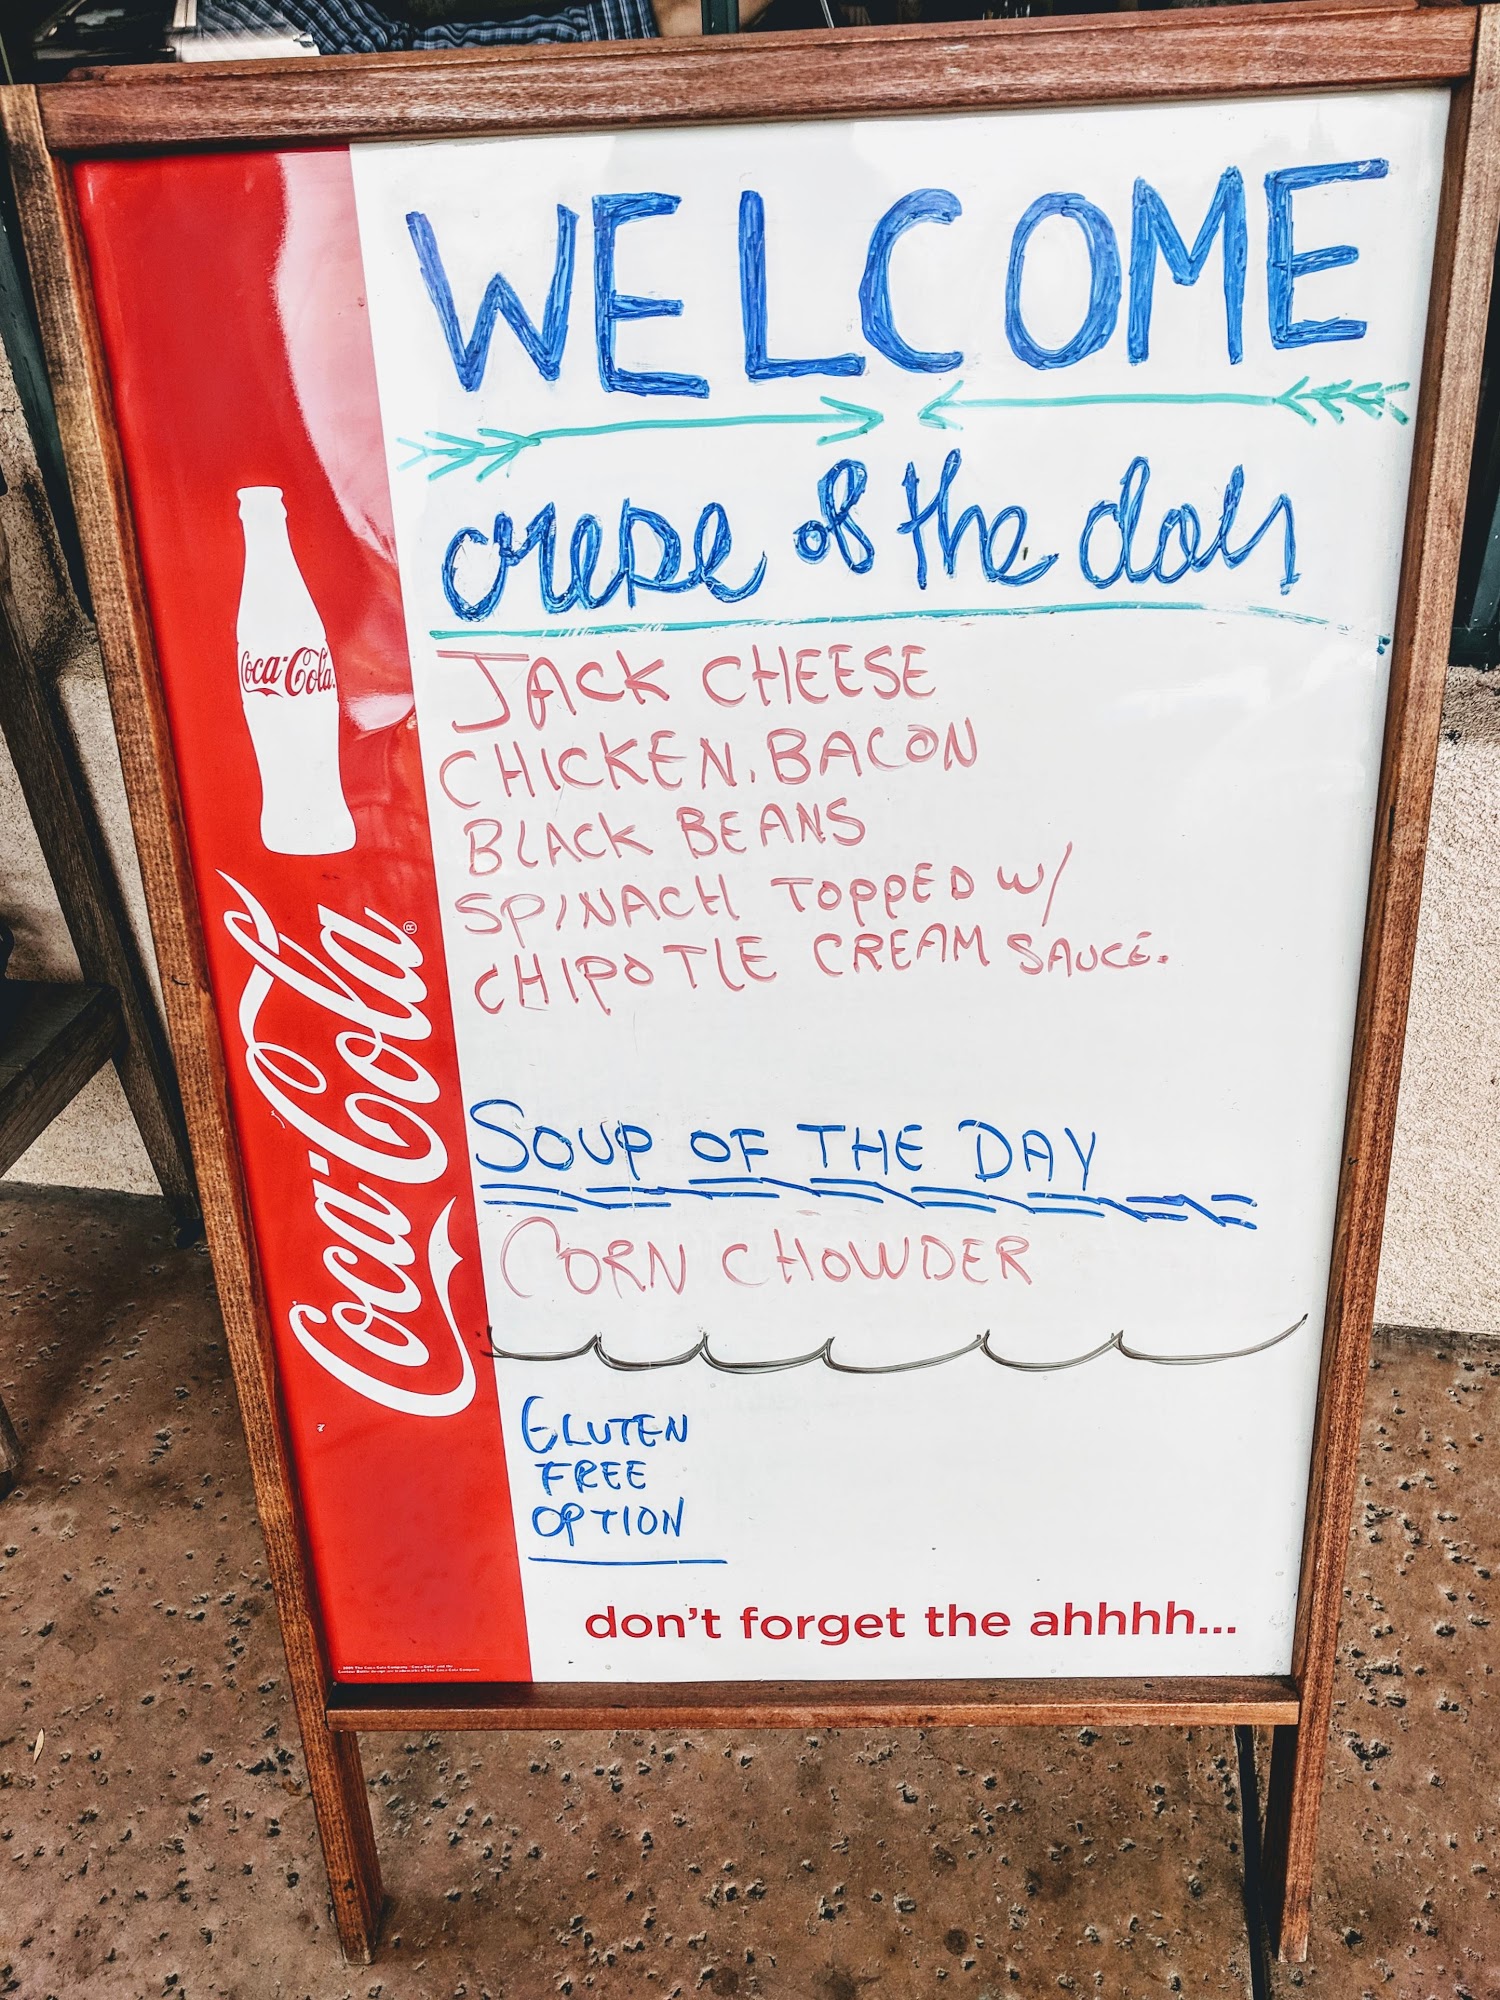 WELCOME
crepe of the day
JACK CHEESE
CHICKEN, BACON
BLACK BEANS
SPINACH TOPPED W/
CHIPOTLE CREAM SAUCE.
SOUP OF THE DAY
CORN CHOWDER
GLUTEN
FREE
OPTION
don't forget the ahhhh...
Coca-Cola
Coca-Cola®